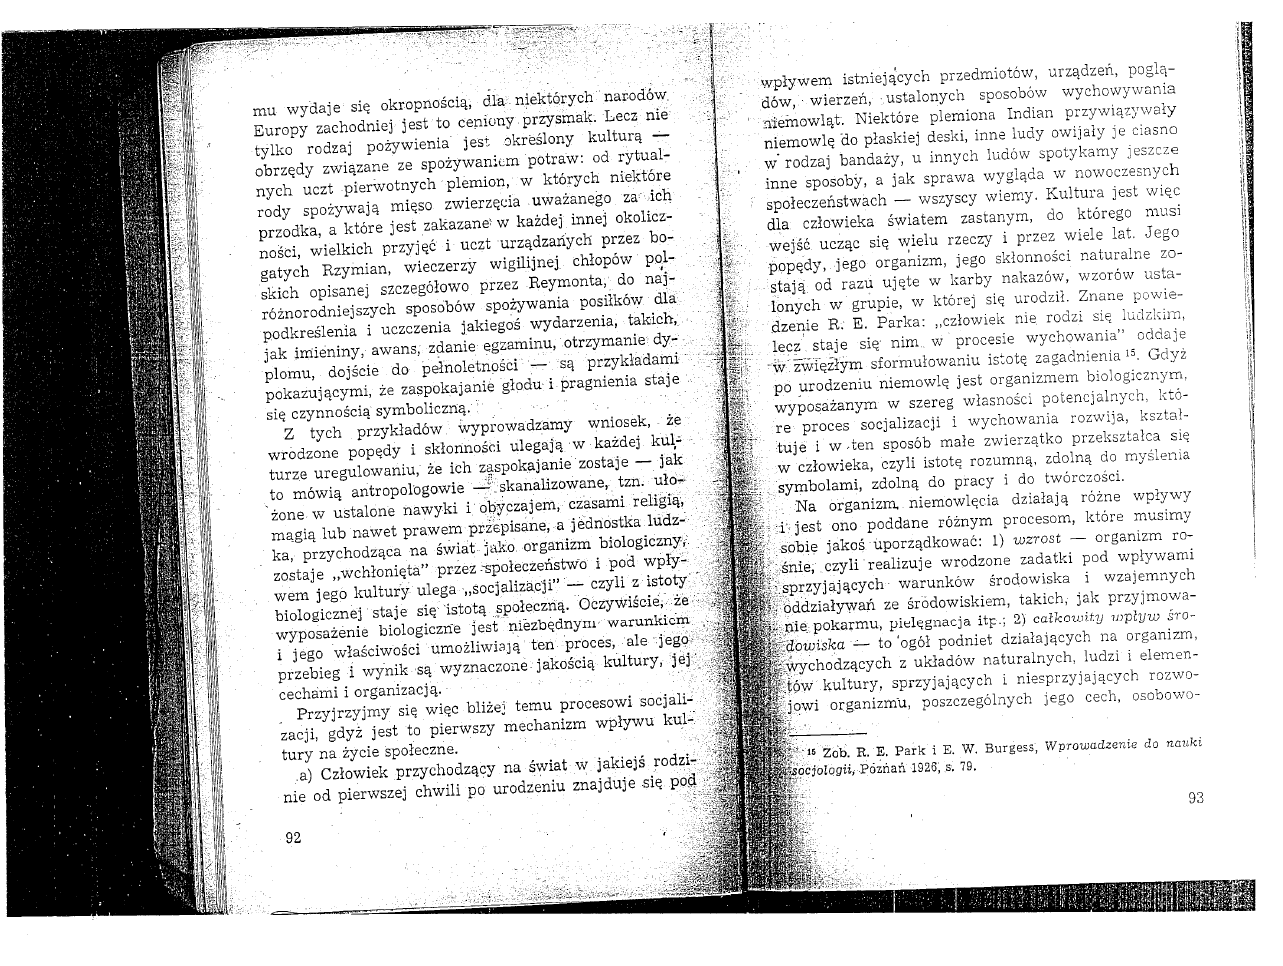 mu wydaje się okropnością, dla niektórych narodów
Europy zachodniej jest to ceniony przysmak. Lecz nie
tylko rodzaj pożywienia jest określony kulturą —
obrzędy związane ze spożywaniem potraw: od rytual-
nych uczt pierwotnych plemion, w których niektóre
rody spożywają mięso zwierzęcia uważanego za ich
przodka, a które jest zakazane w każdej innej okolicz-
ności, wielkich przyjęć i uczt urządzanych przez bo-
gatych Rzymian, wieczerzy wigilijnej chłopów pol-
skich opisanej szczegółowo przez Reymonta, do naj-
różnorodniejszych sposobów spożywania posiłków dla
podkreślenia i uczczenia jakiegoś wydarzenia, takich,
jak imieniny, awans, zdanie egzaminu, otrzymanie dy-
plomu, dojście do pełnoletności — są przykładami
pokazującymi, że zaspokajanie głodu i pragnienia staje
się czynnością symboliczną.
Z tych przykładów wyprowadzamy wniosek, że
wrodzone popędy i skłonności ulegają w każdej kul-
turze uregulowaniu, że ich zaspokajanie zostaje — jak
to mówią antropologowie — skanalizowane, tzn. uło-
żone w ustalone nawyki i obyczajem, czasami religią,
magią lub nawet prawem przepisane, a jednostka ludz-
ka, przychodząca na świat jako organizm biologiczny,
zostaje „wchłonięta” przez społeczeństwo i pod wpły-
wem jego kultury ulega „socjalizacji” — czyli z istoty
biologicznej staje się istotą społeczną. Oczywiście, że
wyposażenie biologiczne jest niezbędnym warunkiem
i jego właściwości umożliwiają ten proces, ale jego
przebieg i wynik są wyznaczone jakością kultury, jej
cechami i organizacją.
Przyjrzyjmy się więc bliżej temu procesowi socjali-
zacji, gdyż jest to pierwszy mechanizm wpływu kul-
tury na życie społeczne.
a) Człowiek przychodzący na świat w jakiejś rodzi-
nie od pierwszej chwili po urodzeniu znajduje się pod
92
wpływem istniejących przedmiotów, urządzeń, poglą-
dów, wierzeń, ustalonych sposobów wychowywania
niemowląt. Niektóre plemiona Indian przywiązywały
niemowlę do płaskiej deski, inne ludy owijały je ciasno
w rodzaj bandaży, u innych ludów spotykamy jeszcze
inne sposoby, a jak sprawa wygląda w nowoczesnych
społeczeństwach — wszyscy wiemy. Kultura jest więc
dla człowieka światem zastanym, do którego musi
wejść ucząc się wielu rzeczy i przez wiele lat. Jego
popędy, jego organizm, jego skłonności naturalne zo-
stają od razu ujęte w karby nakazów, wzorów usta-
lonych w grupie, w której się urodził. Znane powie-
dzenie R. E. Parka: „człowiek nie rodzi się ludzkim,
lecz staje się nim w procesie wychowania” oddaje
w zwięzłym sformułowaniu istotę zagadnienia ¹⁵. Gdyż
po urodzeniu niemowlę jest organizmem biologicznym,
wyposażanym w szereg własności potencjalnych, któ-
re proces socjalizacji i wychowania rozwija, kształ-
tuje i w ten sposób małe zwierzątko przekształca się
w człowieka, czyli istotę rozumną, zdolną do myślenia
symbolami, zdolną do pracy i do twórczości.
Na organizm niemowlęcia działają różne wpływy
i jest ono poddane różnym procesom, które musimy
sobie jakoś uporządkować: 1) wzrost — organizm ro-
śnie, czyli realizuje wrodzone zadatki pod wpływami
sprzyjających warunków środowiska i wzajemnych
oddziaływań ze środowiskiem, takich, jak przyjmowa-
nie pokarmu, pielęgnacja itp.; 2) całkowity wpływ śro-
dowiska — to ogół podniet działających na organizm,
wychodzących z układów naturalnych, ludzi i elemen-
tów kultury, sprzyjających i niesprzyjających rozwo-
jowi organizmu, poszczególnych jego cech, osobowo-
¹⁵ Zob. R. E. Park i E. W. Burgess, Wprowadzenie do nauki
socjologii, Poznań 1926, s. 79.
93